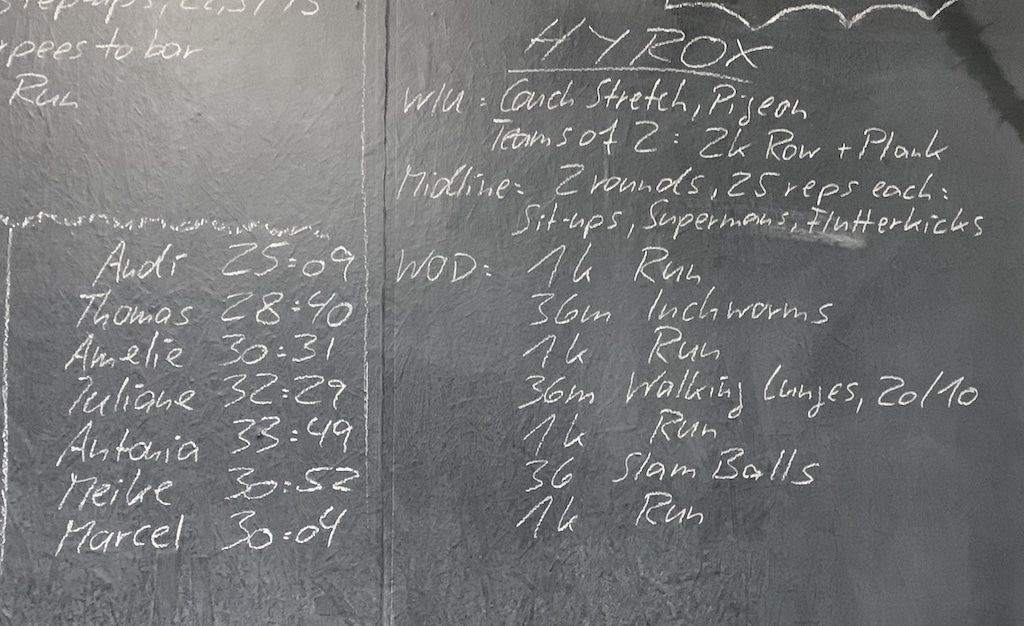 to bar
Run
HYROX
W/U: Couch Stretch, Pigeon
Teams of 2: 2k Row + Plank
Midline: 2 rounds, 25 reps each:
Sit-ups, Supermans, Flutterkicks
WOD: 1k Run
36m Inchworms
1k Run
36m Walking Lunges, 20/10
1k Run
36 Slam Balls
1k Run
Andi 25:09
Thomas 28:40
Amelie 30:31
Juliane 32:29
Antonia 33:49
Meike 30:52
Marcel 30:04